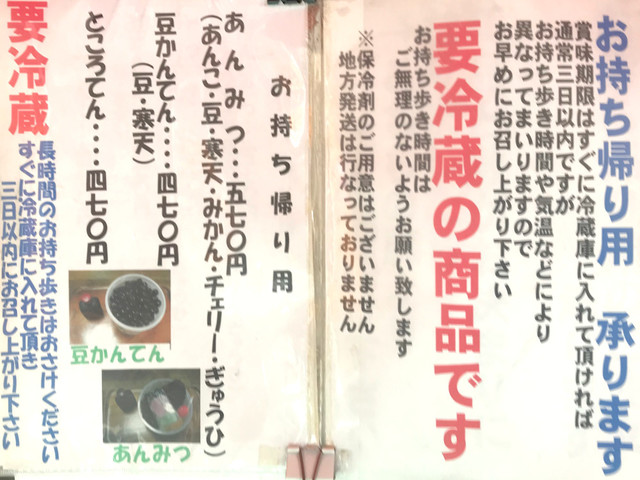 お持ち帰り用 承ります
賞味期限はすぐに冷蔵庫に入れて頂ければ
通常三日以内ですが
お持ち歩き時間や気温などにより
異なってまいりますので
お早めにお召し上がり下さい
要冷蔵の商品です
お持ち歩き時間は
ご無理のないようお願い致します
※保冷剤のご用意はございません
地方発送は行なっておりません
お持ち帰り用
あんみつ・・・五七〇円
(あんこ・豆・寒天・みかん・チェリー・ぎゅうひ)
豆かんてん・・・・四七〇円
(豆・寒天)
ところてん・・・・四七〇円
豆かんてん
あんみつ
要冷蔵
長時間のお持ち歩きはおさけください
すぐに冷蔵庫に入れて頂き
三日以内にお召し上がり下さい